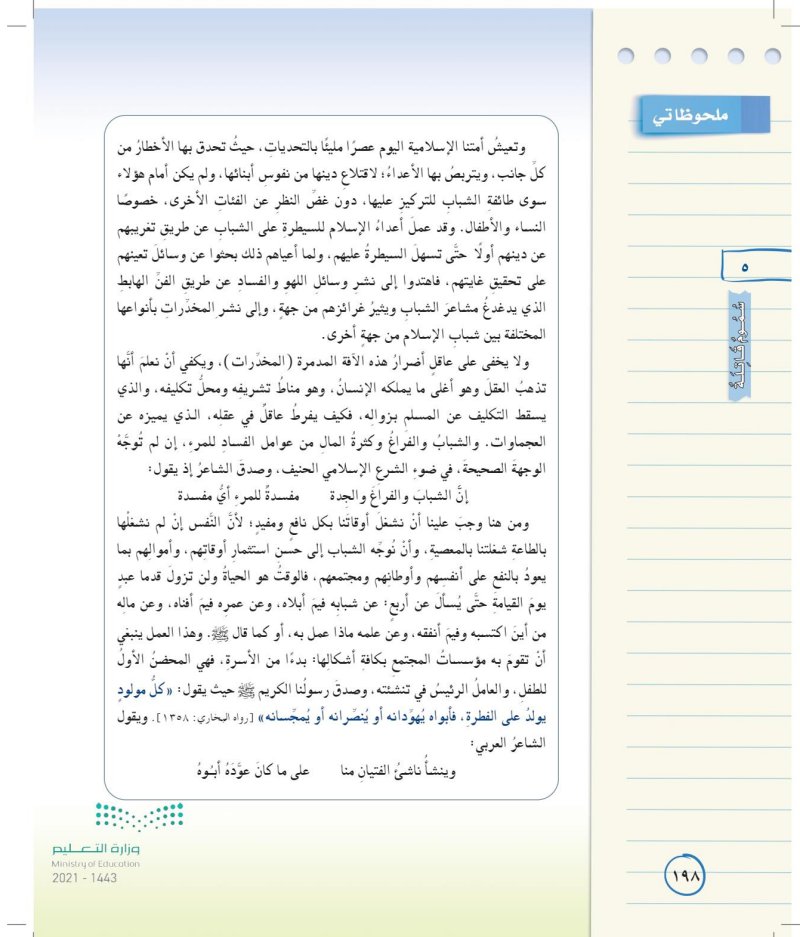 ملحوظاتي
٥
سُمُومٌ قَاتِلَةٌ
وتعيشُ أمتنا الإسلامية اليوم عصرًا مليئًا بالتحدياتِ، حيثُ تحدق بها الأخطارُ من
كلِّ جانب، ويتربصُ بها الأعداءُ؛ لاقتلاعِ دينها من نفوسِ أبنائها، ولم يكن أمام هؤلاء
سوى طائفة الشبابِ للتركيزِ عليها، دون غضِّ النظرِ عن الفئاتِ الأخرى، خصوصًا
النساء والأطفال. وقد عملَ أعداءُ الإسلام للسيطرةِ على الشبابِ عن طريقِ تغريبهم
عن دينهم أولًا حتَّى تسهلَ السيطرةُ عليهم، ولما أعياهم ذلك بحثوا عن وسائلَ تعينهم
على تحقيقِ غايتهم، فاهتدوا إلى نشرِ وسائلِ اللهوِ والفسادِ عن طريقِ الفنِّ الهابطِ
الذي يدغدغُ مشاعرَ الشبابِ ويثيرُ غرائزهم من جهةٍ، وإلى نشرِ المخدِّراتِ بأنواعها
المختلفة بين شبابِ الإسلام من جهةٍ أخرى.
ولا يخفى على عاقلٍ أضرارُ هذه الآفة المدمرة (المخدِّرات)، ويكفي أنْ نعلمَ أنَّها
تذهبُ العقلَ وهو أغلى ما يملكه الإنسانُ، وهو مناطُ تشريفِه ومحلُّ تكليفه، والذي
يسقط التكليف عن المسلمِ بزوالِه، فكيف يفرطُ عاقلٌ في عقلِه، الذي يميزه عن
العجماوات. والشبابُ والفراغُ وكثرةُ المالِ من عوامل الفسادِ للمرءِ، إن لم تُوجَّهْ
الوجهةَ الصحيحةَ، في ضوءِ الشرعِ الإسلامي الحنيف، وصدقَ الشاعرُ إذ يقول:
إنَّ الشبابَ والفراغَ والجِدة مفسدةٌ للمرءِ أيُّ مفسدة
ومن هنا وجبَ علينا أنْ نشغلَ أوقاتَنا بكل نافعٍ ومفيدٍ؛ لأنَّ النَّفس إنْ لم نشغلْها
بالطاعةِ شغلتنا بالمعصيةِ، وأنْ نُوجِّه الشباب إلى حسنِ استثمارِ أوقاتهم، وأموالهم بما
يعودُ بالنفعِ على أنفسِهم وأوطانِهم ومجتمعهم، فالوقتُ هو الحياةُ ولن تزولَ قدما عبدٍ
يومَ القيامةِ حتَّى يُسألَ عن أربعٍ: عن شبابه فيمَ أبلاه، وعن عمرِه فيمَ أفناه، وعن مالِهِ
من أينَ اكتسبه وفيمَ أنفقه، وعن علمه ماذا عمل به، أو كما قال ﷺ. وهذا العمل ينبغي
أنْ تقومَ به مؤسساتُ المجتمعِ بكافةِ أشكالِها: بدءًا من الأسرة، فهي المحضنُ الأولُ
للطفلِ، والعاملُ الرئيسُ في تنشئته، وصدقَ رسولُنا الكريم ﷺ حيث يقول: «كلُّ مولودٍ
يولدُ على الفطرةِ، فأبواه يُهوِّدانه أو يُنصِّرانه أو يُمجِّسانه» [رواه البخاري: ١٣٥٨]. ويقول
الشاعرُ العربي:
وينشأُ ناشئُ الفتيانِ منا على ما كانَ عوَّدَهُ أبُوهُ
وزارة التعليم
Ministry of Education
2021 - 1443
١٩٨